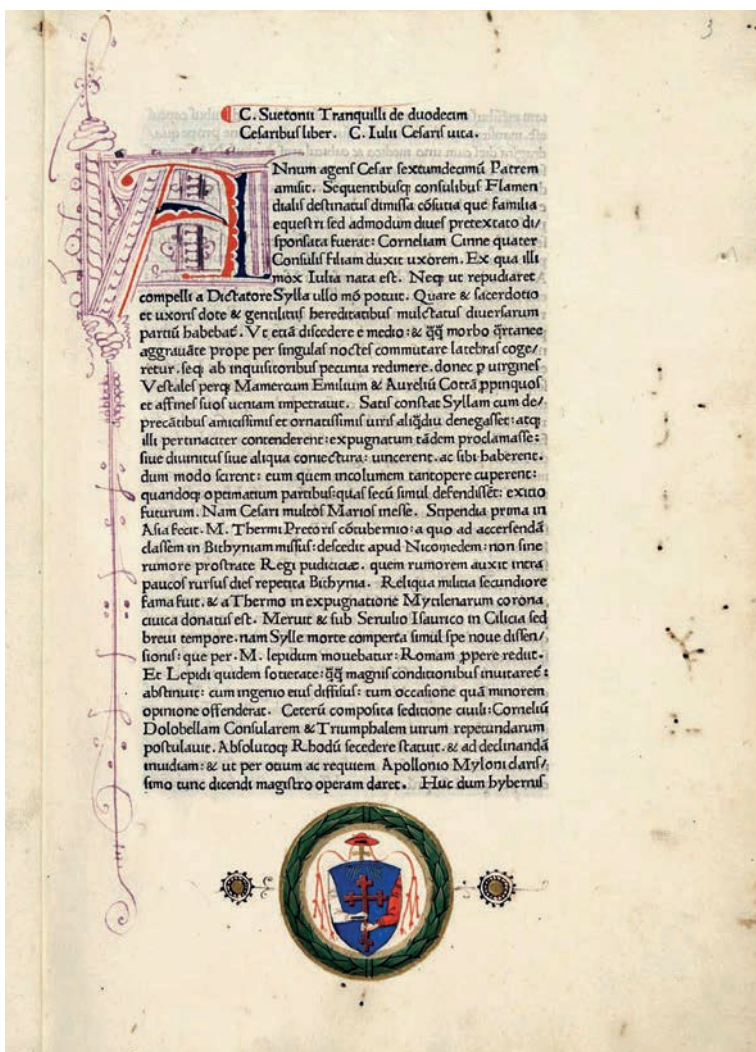 3
C. Suetonii Tranquilli de duodecim
Cesaribus liber. C. Iulii Cesaris uita.
ANnum agens Cesar sextumdecimū Patrem
amisit. Sequentibusq; consulibus Flamen
dialis destinatus dimissa cōsutia que familia
equestri sed admodum diues pretextato di/
sponsata fuerat: Corneliam Cinne quater
Consulis filiam duxit uxorem. Ex qua illi
mox Iulia nata est. Neq; ut repudiaret
compelli a Dictatore Sylla ullo mō potuit. Quare & sacerdotio
et uxoris dote & gentilitiis hereditatibus mulctatus diuersarum
partiū habebat̄. Vt etiā discedere e medio: & q̄q̄ morbo q̄rtanee
aggrauāte prope per singulas noctes commutare latebras coge/
retur. seq; ab inquisitoribus pecunia redimere. donec p uirgines
Vestales perq; Mamercum Emilium & Aureliū Cottā ppinquos
et affines suos ueniam impetrauit. Satis constat Syllam cum de/
precātibus amicissimis et ornatissimis uiris aliq̄diu denegasset: atq;
illi pertinaciter contenderent: expugnatum tādem proclamasse:
siue diuinitus siue aliqua coniectura: uincerent. ac sibi haberent.
dum modo scirent: eum quem incolumem tantopere cuperent:
quandoq; optimatium partibus: quas secū simul defendissēt: exitio
futurum. Nam Cesari multos Marios inesse. Stipendia prima in
Asia fecit. M. Thermi Pretoris cōtubernio: a quo ad accersendā
classem in Bithyniam missus: desedit apud Nicomedem: non sine
rumore prostrate Regi pudicitiæ. quem rumorem auxit intra
paucos rursus dies repetita Bithynia. Reliqua militia secundiore
fama fuit. & a Thermo in expugnatione Mytilenarum corona
ciuica donatus est. Meruit & sub Seruilio Isaurico in Cilicia sed
breui tempore. nam Sylle morte comperta simul spe noue dissen/
sionis: que per. M. lepidum mouebatur: Romam ppere rediit.
Et Lepidi quidem societate: q̄q̄ magnis conditionibus inuitaret̄:
abstinuit: cum ingenio eius diffisus: tum occasione quā minorem
opinione offenderat. Ceterū composita seditione ciuili: Corneliū
Dolobellam Consularem & Triumphalem uirum repetundarum
postulauit. Absolutoq; Rhodū secedere statuit. & ad declinandā
inuidiam: & ut per otium ac requiem Apollonio Myloni claris/
simo tunc dicendi magistro operam daret. Huc dum hybernis